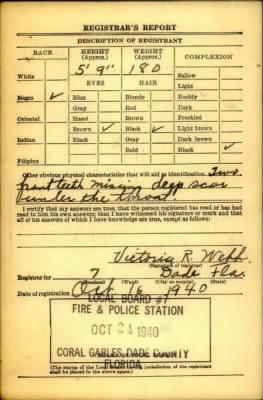 REGISTRAR'S REPORT
DESCRIPTION OF REGISTRANT
RACE HEIGHT (Approx.) WEIGHT (Approx.) COMPLEXION
5' 9" 180
White Sallow
EYES HAIR Light
Negro ✓ Blue Blonde Ruddy
Gray Red Dark
Oriental Hazel Brown Freckled
Brown ✓ Black ✓ Light brown
Indian Black Gray Dark brown
Bald Black ✓
Filipino
Other obvious physical characteristics that will aid in identification. Two
front teeth missing deep scar
under the throat.
I certify that my answers are true; that the person registered has read or has had
read to him his own answers; that I have witnessed his signature or mark and that
all of his answers of which I have knowledge are true, except as follows:
Victoria R. Webb
(Signature of registrar)
Registrar for 7 Dade Fla.
(Precinct) (City or county) (State)
Date of registration Oct 16 1940
LOCAL BOARD #7
FIRE & POLICE STATION
OCT 24 1940
CORAL GABLES, DADE COUNTY
FLORIDA
(The stamp of the Local Board having jurisdiction of the registrant
shall be placed in the above space.)